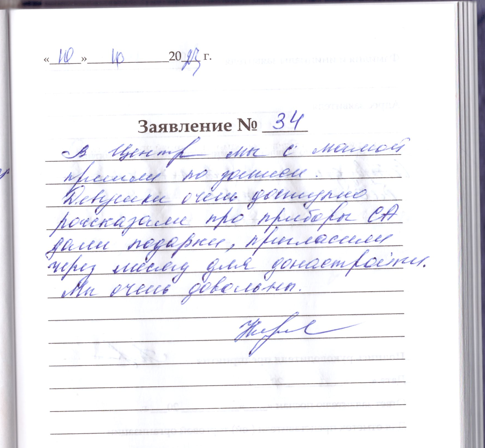 «10» 10 2023 г.
Заявление № 34
В Центр мы с мамой
пришли по записи.
Девушки очень доступно
рассказали про приборы СА
дали подарки, пригласили
через месяц для донастройки.
Мы очень довольны.